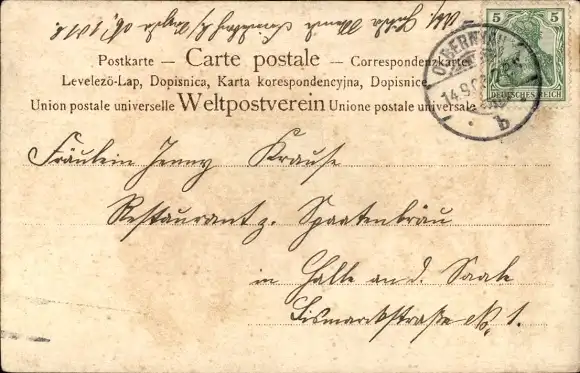 Postkarte – Carte postale – Correspondenzkarte
Levelezö-Lap, Dopisnica, Karta korespondencyjna, Dopisnice
Union postale universelle Weltpostverein Unione postale universale
5 5
DEUTSCHES REICH
14.9.
b
Fräulein Jenny Krause
Restaurant z. Spaatenbräu
in Halle an d. Saale
Bismarckstraße No. 1.